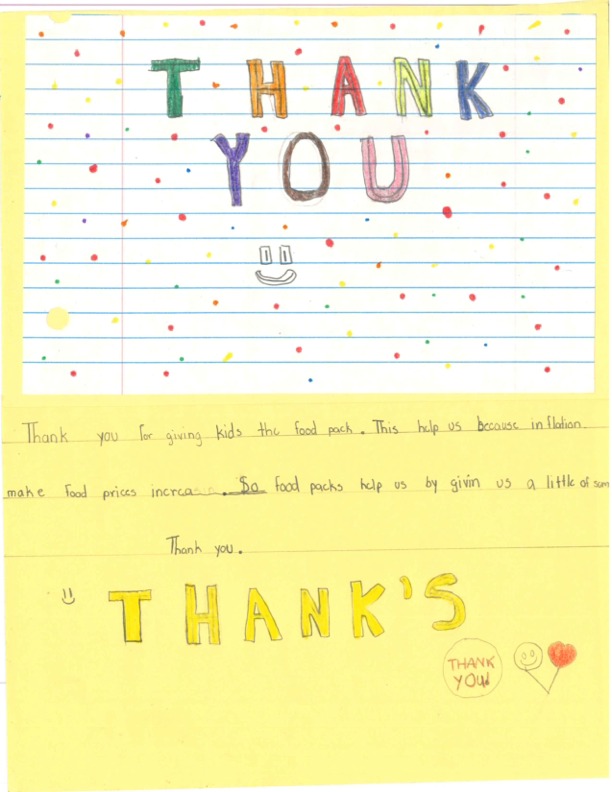 THANK
YOU
Thank you for giving kids the food pack. This help us because inflation
make food prices increa.... So food packs help us by givin us a little of som
Thank you.
THANK'S
THANK
YOU!